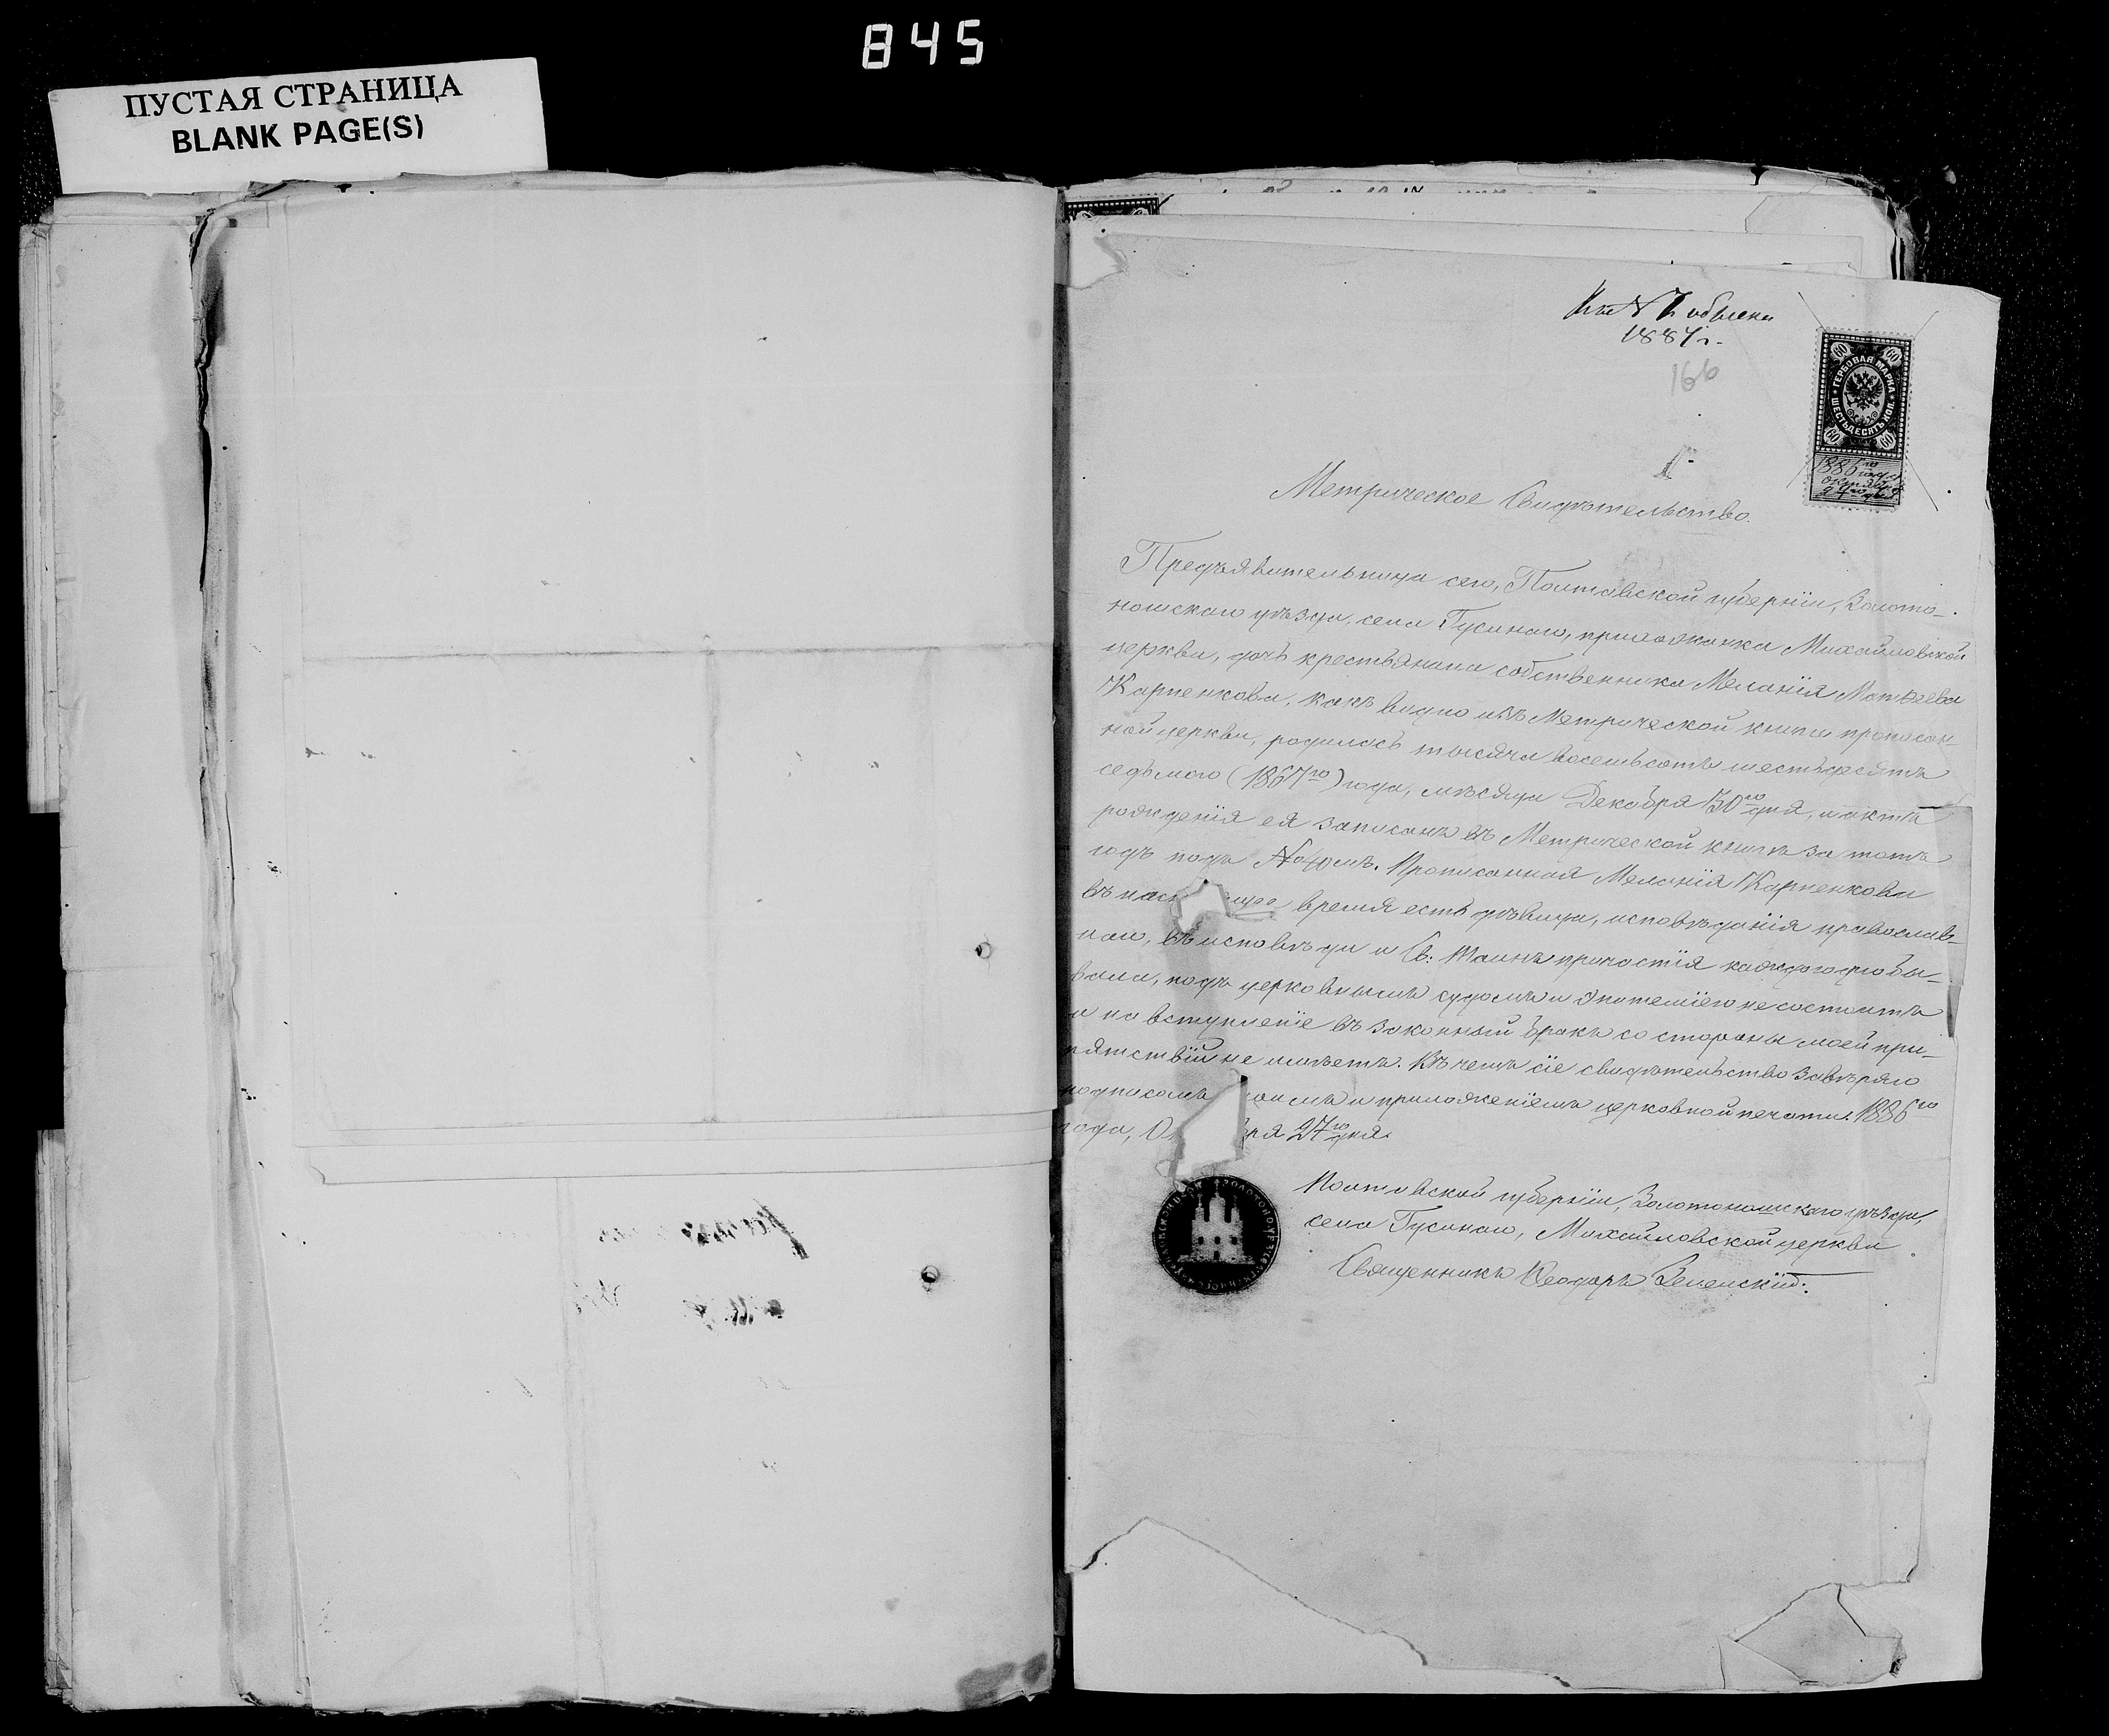 845
ПУСТАЯ СТРАНИЦА
BLANK PAGE(S)
Къ № 7 обыска
1887 г.
166
60 60
ГЕРБОВАЯ МАРКА
ШЕСТЬДЕСЯТЪ КОП.
60 60
1886го года
октября
27го дня
Метрическое Свидѣтельство.
Предъявительница сего, Полтавской губерніи, Золото-
ношскаго уѣзда, села Гусинаго, прихожанка Михайловской
церкви, дочь крестьянина собственника Меланія Матвеева
Карпенкова, какъ видно изъ Метрической книги прописан-
ной церкви, родилась тысяча восемьсотъ шестьдесятъ
седьмого (1867го) года, мѣсяца Декабря 30го дня, и актъ
рожденія ея записанъ въ Метрической книгѣ за тотъ
годъ подъ № 40мъ. Прописанная Меланія Карпенкова
въ нас щее время есть дѣвица, исповѣданія православ-
наго, въ исповѣди и Св: Таинъ причастія каждогодно бы-
вала, подъ церковнымъ судомъ и эпитеміею не состоитъ
и на вступленіе въ законный бракъ со стороны моей пре-
пятствій не имѣетъ. Въ чемъ сіе свидѣтельство завѣряю
подписомъ моимъ и приложеніемъ церковной печати. 1886го
года, Ок бря 27го дня.
Полтавской губерніи, Золотоношскаго уѣзда,
села Гусинаго, Михайловской церкви
Священникъ Ѳеодоръ Зеленскій: